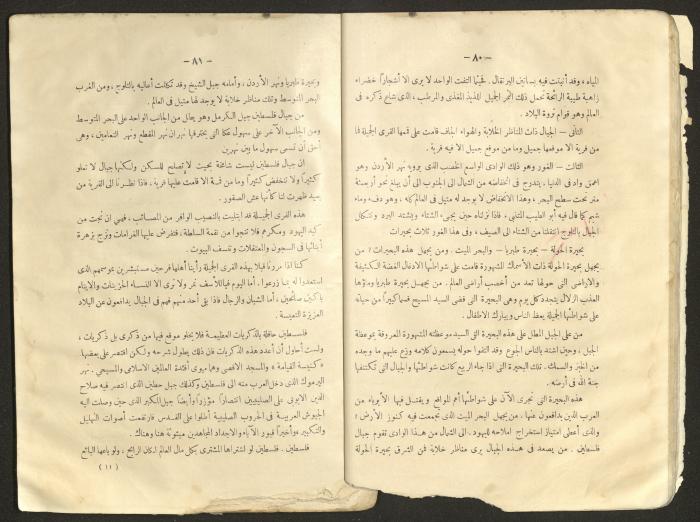 — ٨٠ —
المياه، وقد أنبتت فيه بساتين البرتقال. فحيثما التفت الواحد لا يرى الا أشجاراً خضراء
زاهية طيبة الرائحة تحمل ذلك الثمر الجميل اللذيذ المغذي والمرطب، الذي شاع ذكره في
العالم وهو قوام ثروة البلاد.
الثاني — الجبال ذات المناظر الخلابة والهواء الجاف قامت على قمها القرى الجميلة فما
من قرية الا موقعها جميل وما من موقع جميل الا فيه قرية.
الثالث — الغور وهو ذلك الوادي الواسع الخصب الذي يرويه نهر الأردن وهو
اعمق واد في الدنيا، يتدرج في انخفاضه من الشمال إلى الجنوب الى أن يبلغ نحو أربعمئة
متر تحت سطح البحر، وهذا الانخفاض لا يوجد له مثيل في العالم كله، وهو دفء وماء
شبم كما قال فيه أبو الطيب المتنبي، فاذا نزلناه حين يجيء الشتاء ويشتد البرد وتتكلل
الجبال بالثلوج انتقلنا من الشتاء الى الصيف، وفي هذا الغور ثلاث بحيرات
بحيرة الحولة — بحيرة طبريا — والبحر الميت. ومن يجهل هذه البحيرات؟ من
يجهل بحيرة الحولة ذات الأسماك المشهورة قامت على شواطئها الادغال الغضة الكثيفة
والأراضي التي حولها تعد من أخصب أراضي العالم. من يجهل بحيرة طبريا وماؤها
العذب الزلال يتجدد كل يوم وهي البحيرة التي قضى السيد المسيح قسماً كبيراً من حياته
على شواطئها الجميلة يعظ الناس ويبارك الاطفال.
من على الجبل المطل على هذه البحيرة التي السيد موعظته المشهورة المعروفة بموعظة
الجبل، وحين اشتد بالناس الجوع وقد التفوا حوله يسمعون كلامه وزع عليهم ما وجده
من الخبز والسمك. تلك البحيرة التي اذا جاء الربيع كانت شواطئها والجبال التي تكتنفها
جنة الله في أرضه.
هذه البحيرة التي تجري الآن على شواطئها أهم المواقع ويقتل فيها الأبرياء من
العرب الذين يدافعون عنها. من يجهل البحر الميت الذي تجمعت فيه كنوز الأرض؟
والذي أعطى امتياز استخراج املاحه لليهود. الى الشمال من هذا الوادي تقوم جبال
فلسطين. من يصعد في هذه الجبال يرى مناظر خلابة فمن الشرق بحيرة الحولة
— ٨١ —
وبحيرة طبريا ونهر الأردن، وأمامه جبل الشيخ وقد تكللت أعاليه بالثلوج، ومن الغرب
البحر المتوسط وتلك مناظر خلابة لا يوجد لها مثيل في العالم.
من جبال فلسطين جبل الكرمل وهو يطل من الجانب الواحد على البحر المتوسط
ومن الجانب الآخر على سهول عكا التي يخترقها نهران نهر المقطع ونهر النعامين، وهي
أحق أن تسمى سهول ما بين نهرين
ان جبال فلسطين ليست شامخة بحيث لا تصلح للسكن ولكنها جبال لا تعلو
كثيراً ولا تنخفض كثيراً وما من قمة الا قامت عليها قرية، فاذا نظرنا الى القرية من
بعيد ظهرت لنا كأنها عش الصقور.
هذه القرى الجميلة قد ابتليت بالنصيب الوافر من المصائب، فهي ان نجت من
كيد اليهود ومكرهم فلا تنجو من نقمة السلطة، فتفرض عليها الغرامات وتزج بزهرة
أبنائها في السجون والمعتقلات وتنسف البيوت.
كنا اذا مررنا قبلاً بهذه القرى الجميلة رأينا أهلها فرحين مستبشرين بموسمهم الذي
استعدوا له بما زرعوا. أما اليوم فيا للأسف نمر ولا نرى الا النساء الحزينات والايتام
باكين صائحين، أما الشبان والرجال فاذا بقي أحد منهم فهم في الجبال يدافعون عن البلاد
العزيزة التعيسة.
فلسطين حافلة بالذكريات العظيمة فلا يخلو موقع فيها من ذكرى بل ذكريات،
ولست أحاول أن أعدد هذه الذكريات فان ذلك يطول شرحه ولكن اقتصر على بعضها.
«كنيسة القيامة» والمسجد الاقصى وهما مهوى أفئدة العالمين الاسلامي والمسيحي. نهر
اليرموك الذي دخل العرب منه الى فلسطين وكذلك جبل حطين الذي انتصر فيه صلاح
الدين الايوبي على الصليبيين انتصاراً مؤزراً وأيضاً جبل المكبر الذي حين وصلت اليه
الجيوش العربية في الحروب الصليبية أطلوا على القدس فارتفعت أصوات التهليل
والتكبير وأخيراً قبور الآباء والاجداد المجاهدين مبثوثة هنا وهناك.
فلسطين. فلسطين لو اشتراها المشتري بكل مال العالم لكان الرابح، ولو باعها البائع
(١١)